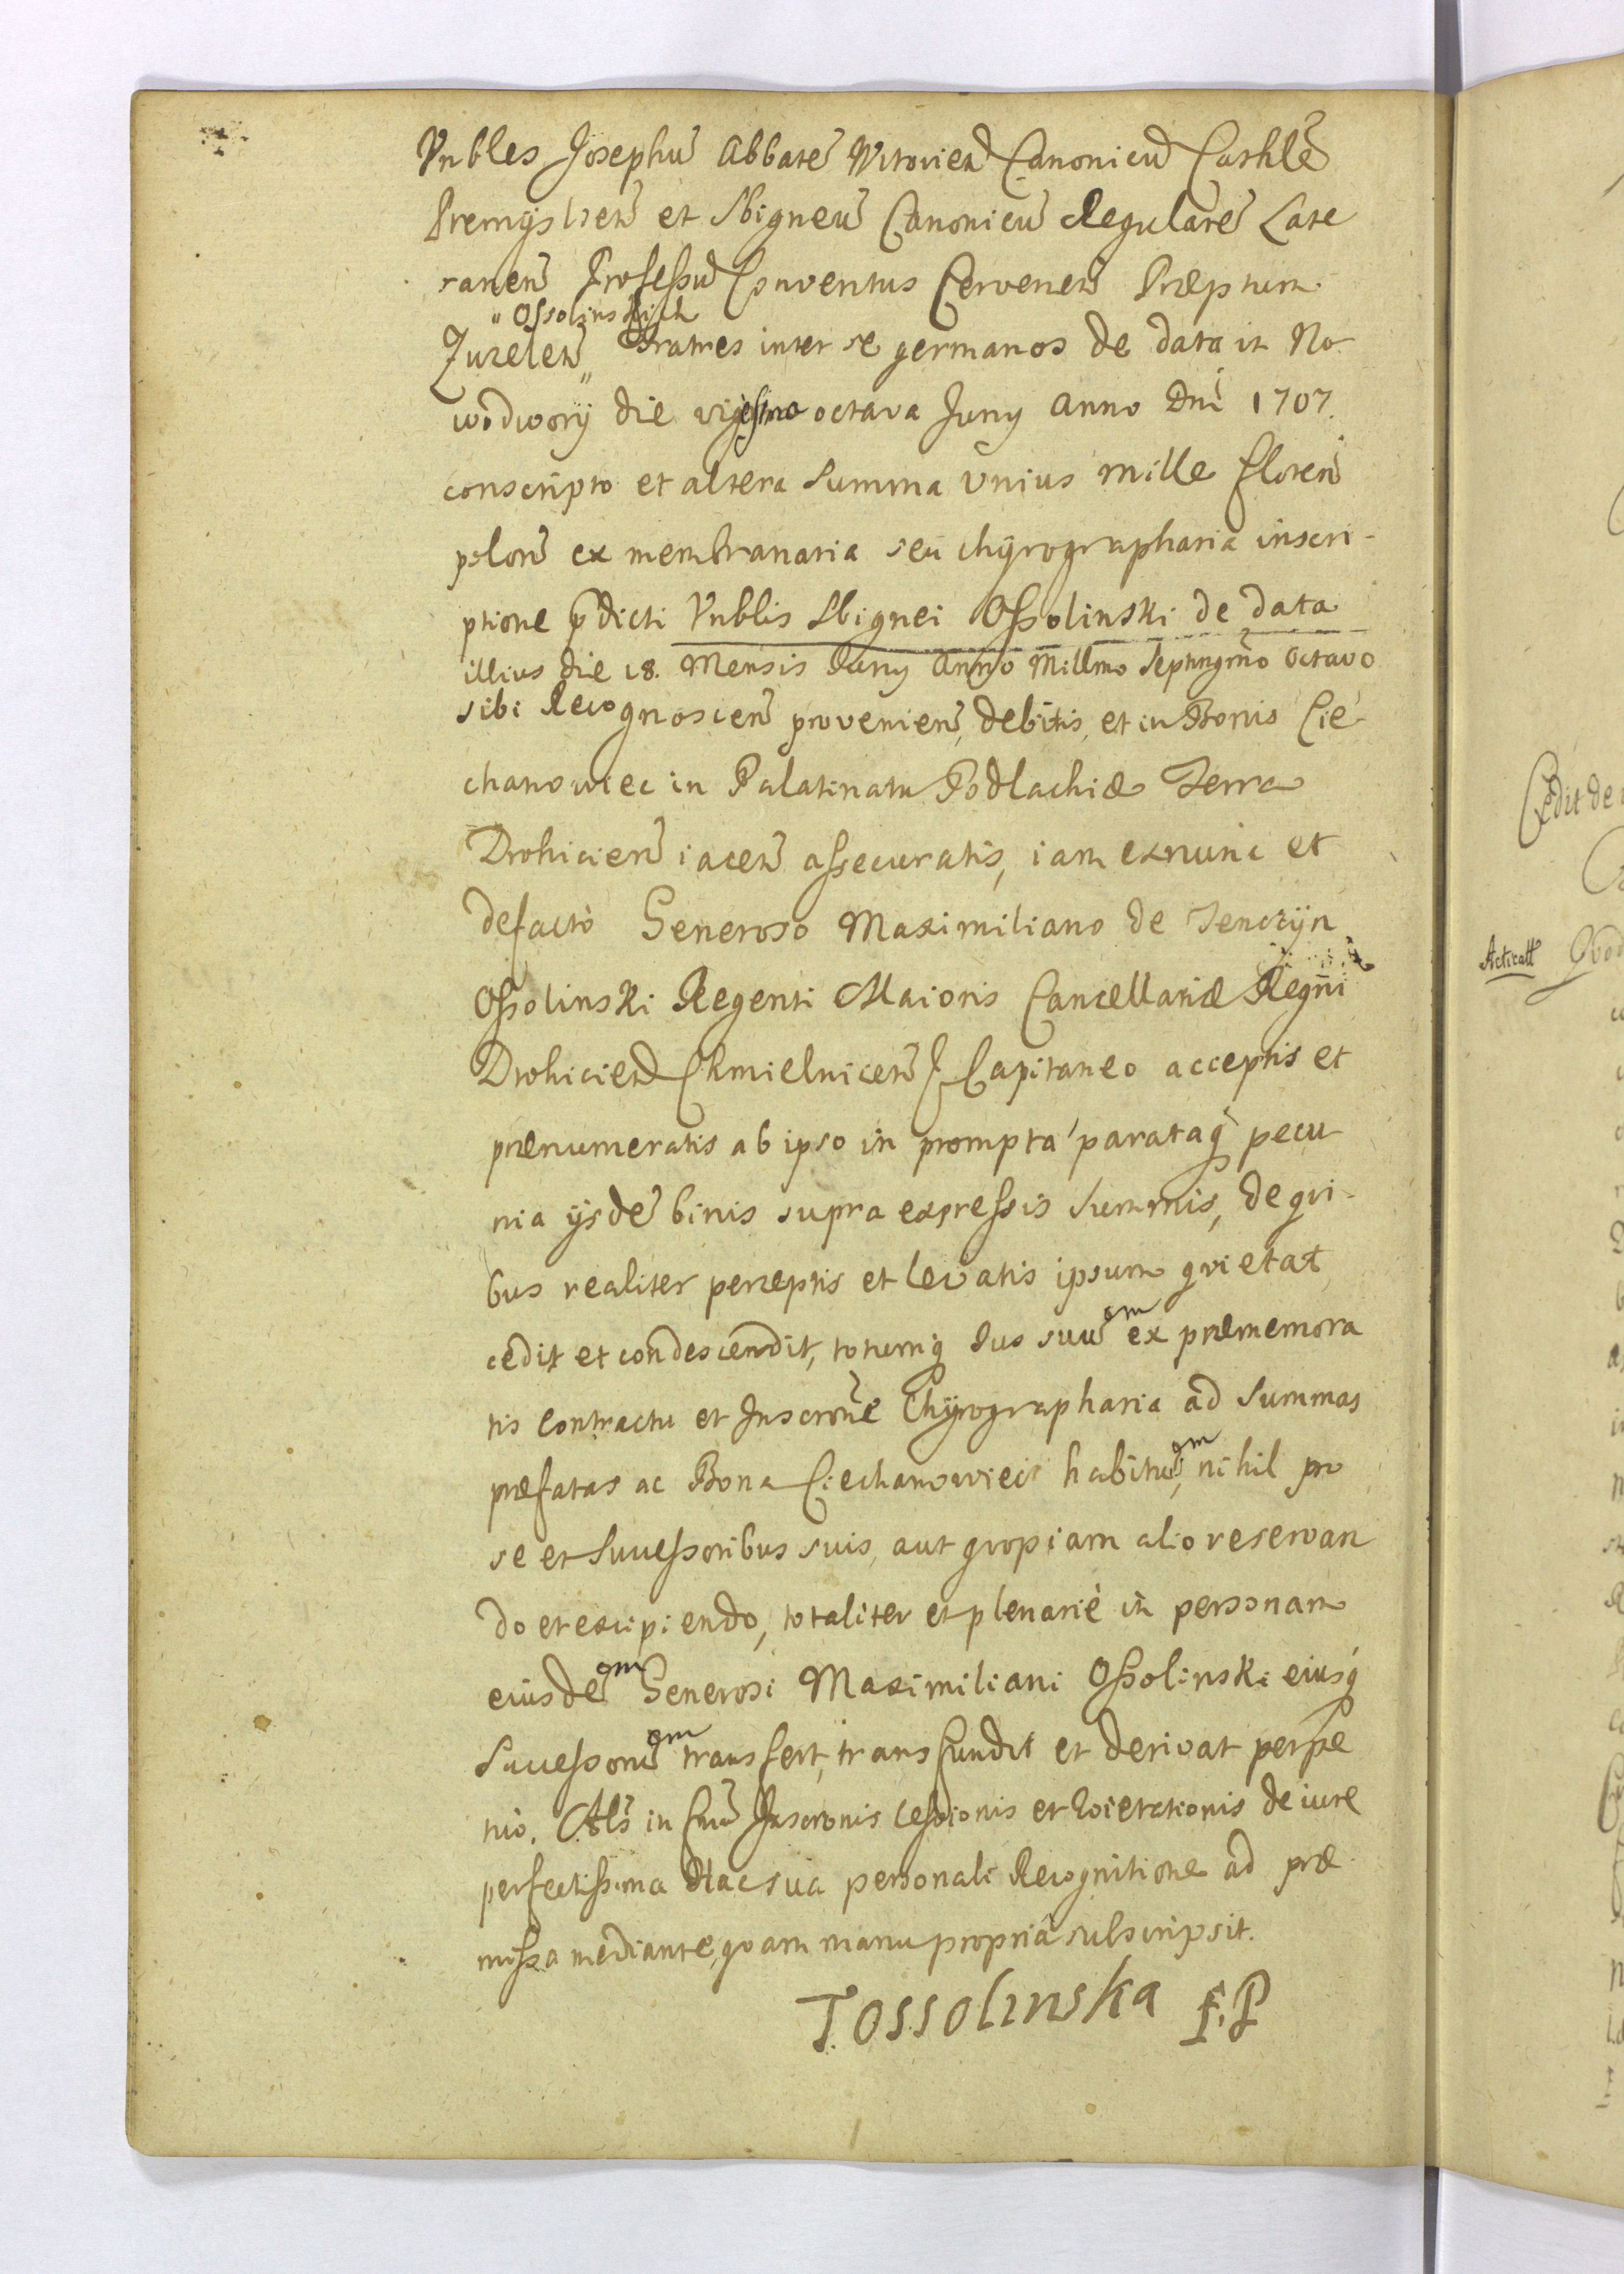 Vnbles Josephu Abbate Witovien Canonicu Cathle
Premyslien et Sbigneu Canonicu Regulare Late
ranen Professu Conventus Cervenen Præptum
" Ossolinskich
Juzelen " Fratres inter se germanos de data in No
wodwory die vigesima octava Juny Anno Dni 1707.
conscripto et altera Summa Vnius Mille floren
polon ex membranaria seu chyrographaria inscri-
ptione pdicti Vnblis Sbignei Ossolinski de data
illius die 18. Mensis Juny Anno Millmo Septingmo Octavo
sibi Recognoscen provenien, debitis, et in Bonis Cie-
chanowiec in Palatinatu Podlachiæ Terra
Drohicien iacen assecuratis, iam exnunc et
defacto Generoso Maximiliano de Tenczyn
Ossolinski Regenti Maioris Cancellariæ Regni
Drohicien Chmielnicen Capitaneo acceptis et
prænumeratis ab ipso in prompta parataq pecu
nia ijsde binis supra expressis Summis, de qvi-
bus realiter perceptis et levatis ipsum qvietat
cedit et condescendit, totumq Ius suu om ex præmemora
tis Contractu et Inscrone Chyrographaria ad Summas
præfatas ac Bona Ciechanowiec habitu, om nihil pro
se et Successoribus suis, aut qvopiam alio reservan
do et excipiendo, totaliter et plenarie in personam
eiusde om Generosi Maximiliani Ossolinski eiusq
Successoru om transfert, transfundit et derivat perpe
tuo. Als in Inscronis Cessionis et Qvietationis de iure
perfectissima Hac sua personali Recognitione ad præ
missa mediante, qvam manu propria subscripsit.
T. Ossolinska
Cedit de
Acticatt Qvod